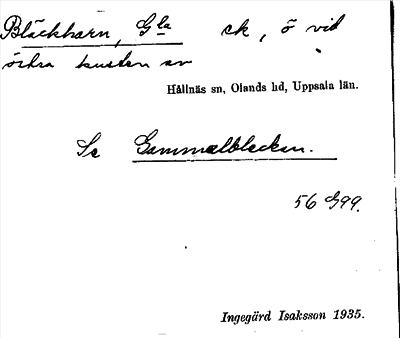 Bläckharn, Gla ek, ö vid
östra kusten av
Hållnäs sn, Olands hd, Uppsala län.
Se Gammelblecken.
56 G99.
Ingegärd Isaksson 1935.